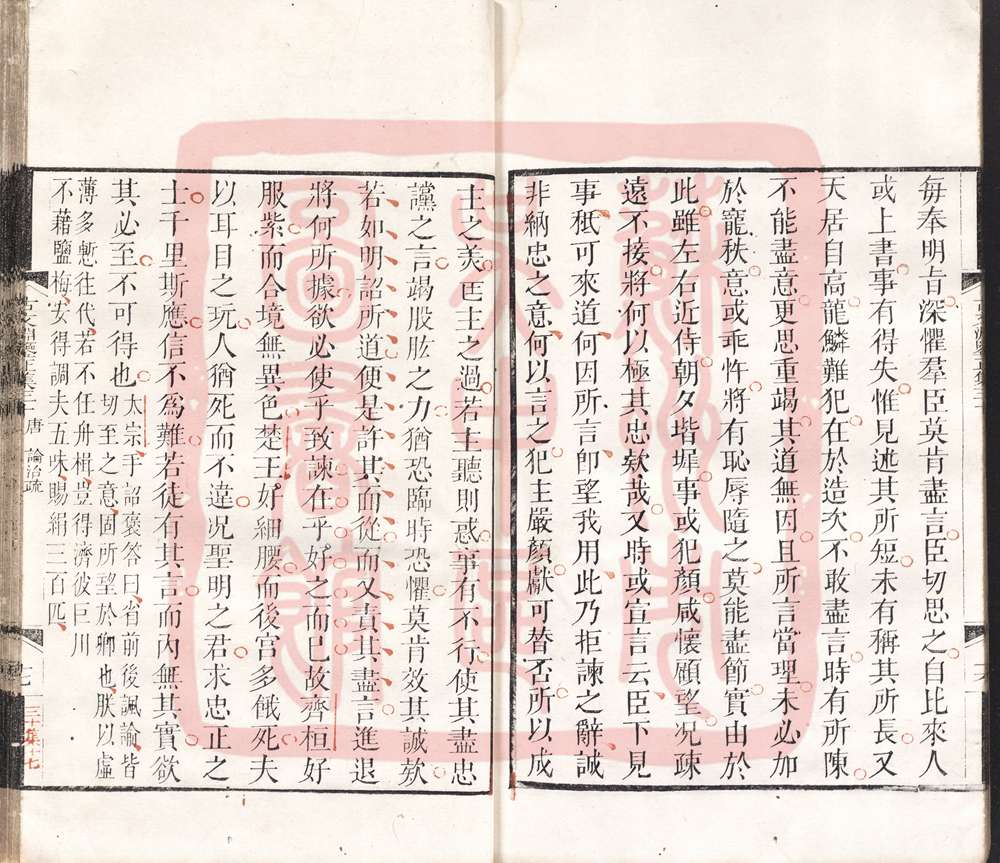 每奉明旨深懼羣臣莫肯盡言臣切思之自比來人
或上書事有得失惟見述其所短未有稱其所長又
天居自高龍鱗難犯在於造次不敢盡言時有所陳
不能盡意更思重竭其道無因且所言當理未必加
於寵秩意或乖忤將有恥辱隨之莫能盡節實由於
此雖左右近侍朝夕堦墀事或犯顏咸懷顧望況疎
遠不接將何以極其忠欵哉又時或宣言云臣下見
事秪可來道何因所言卽望我用此乃拒諫之辭誠
非納忠之意何以言之犯主嚴顏獻可替否所以成
主之美匡主之過若主聽則惑事有不行使其盡忠
讜之言竭股肱之力猶恐臨時恐懼莫肯效其誠欵
若如明詔所道便是許其面從而又責其盡言進退
將何所據欲必使乎致諫在乎好之而已故齊桓好
服紫而合境無異色楚王好細腰而後宮多餓死夫
以耳目之玩人猶死而不違況聖明之君求忠正之
士千里斯應信不爲難若徒有其言而內無其實欲
其必至不可得也太宗手詔褒答曰省前後諷諭皆
切至之意固所望於卿也朕以虛
薄多慙往代若不任舟楫豈得濟彼巨川
不藉鹽梅安得調夫五味賜絹三百匹
唐 論治疏
三十集七